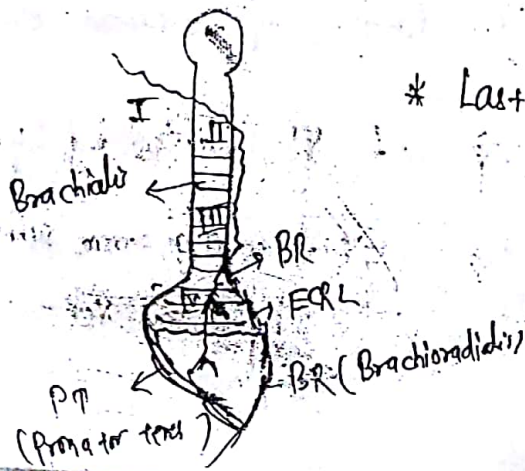 * Last
I
II
Brachialis
III
BR
ECRL
BR (Brachioradialis)
PT
(Pronator teres)